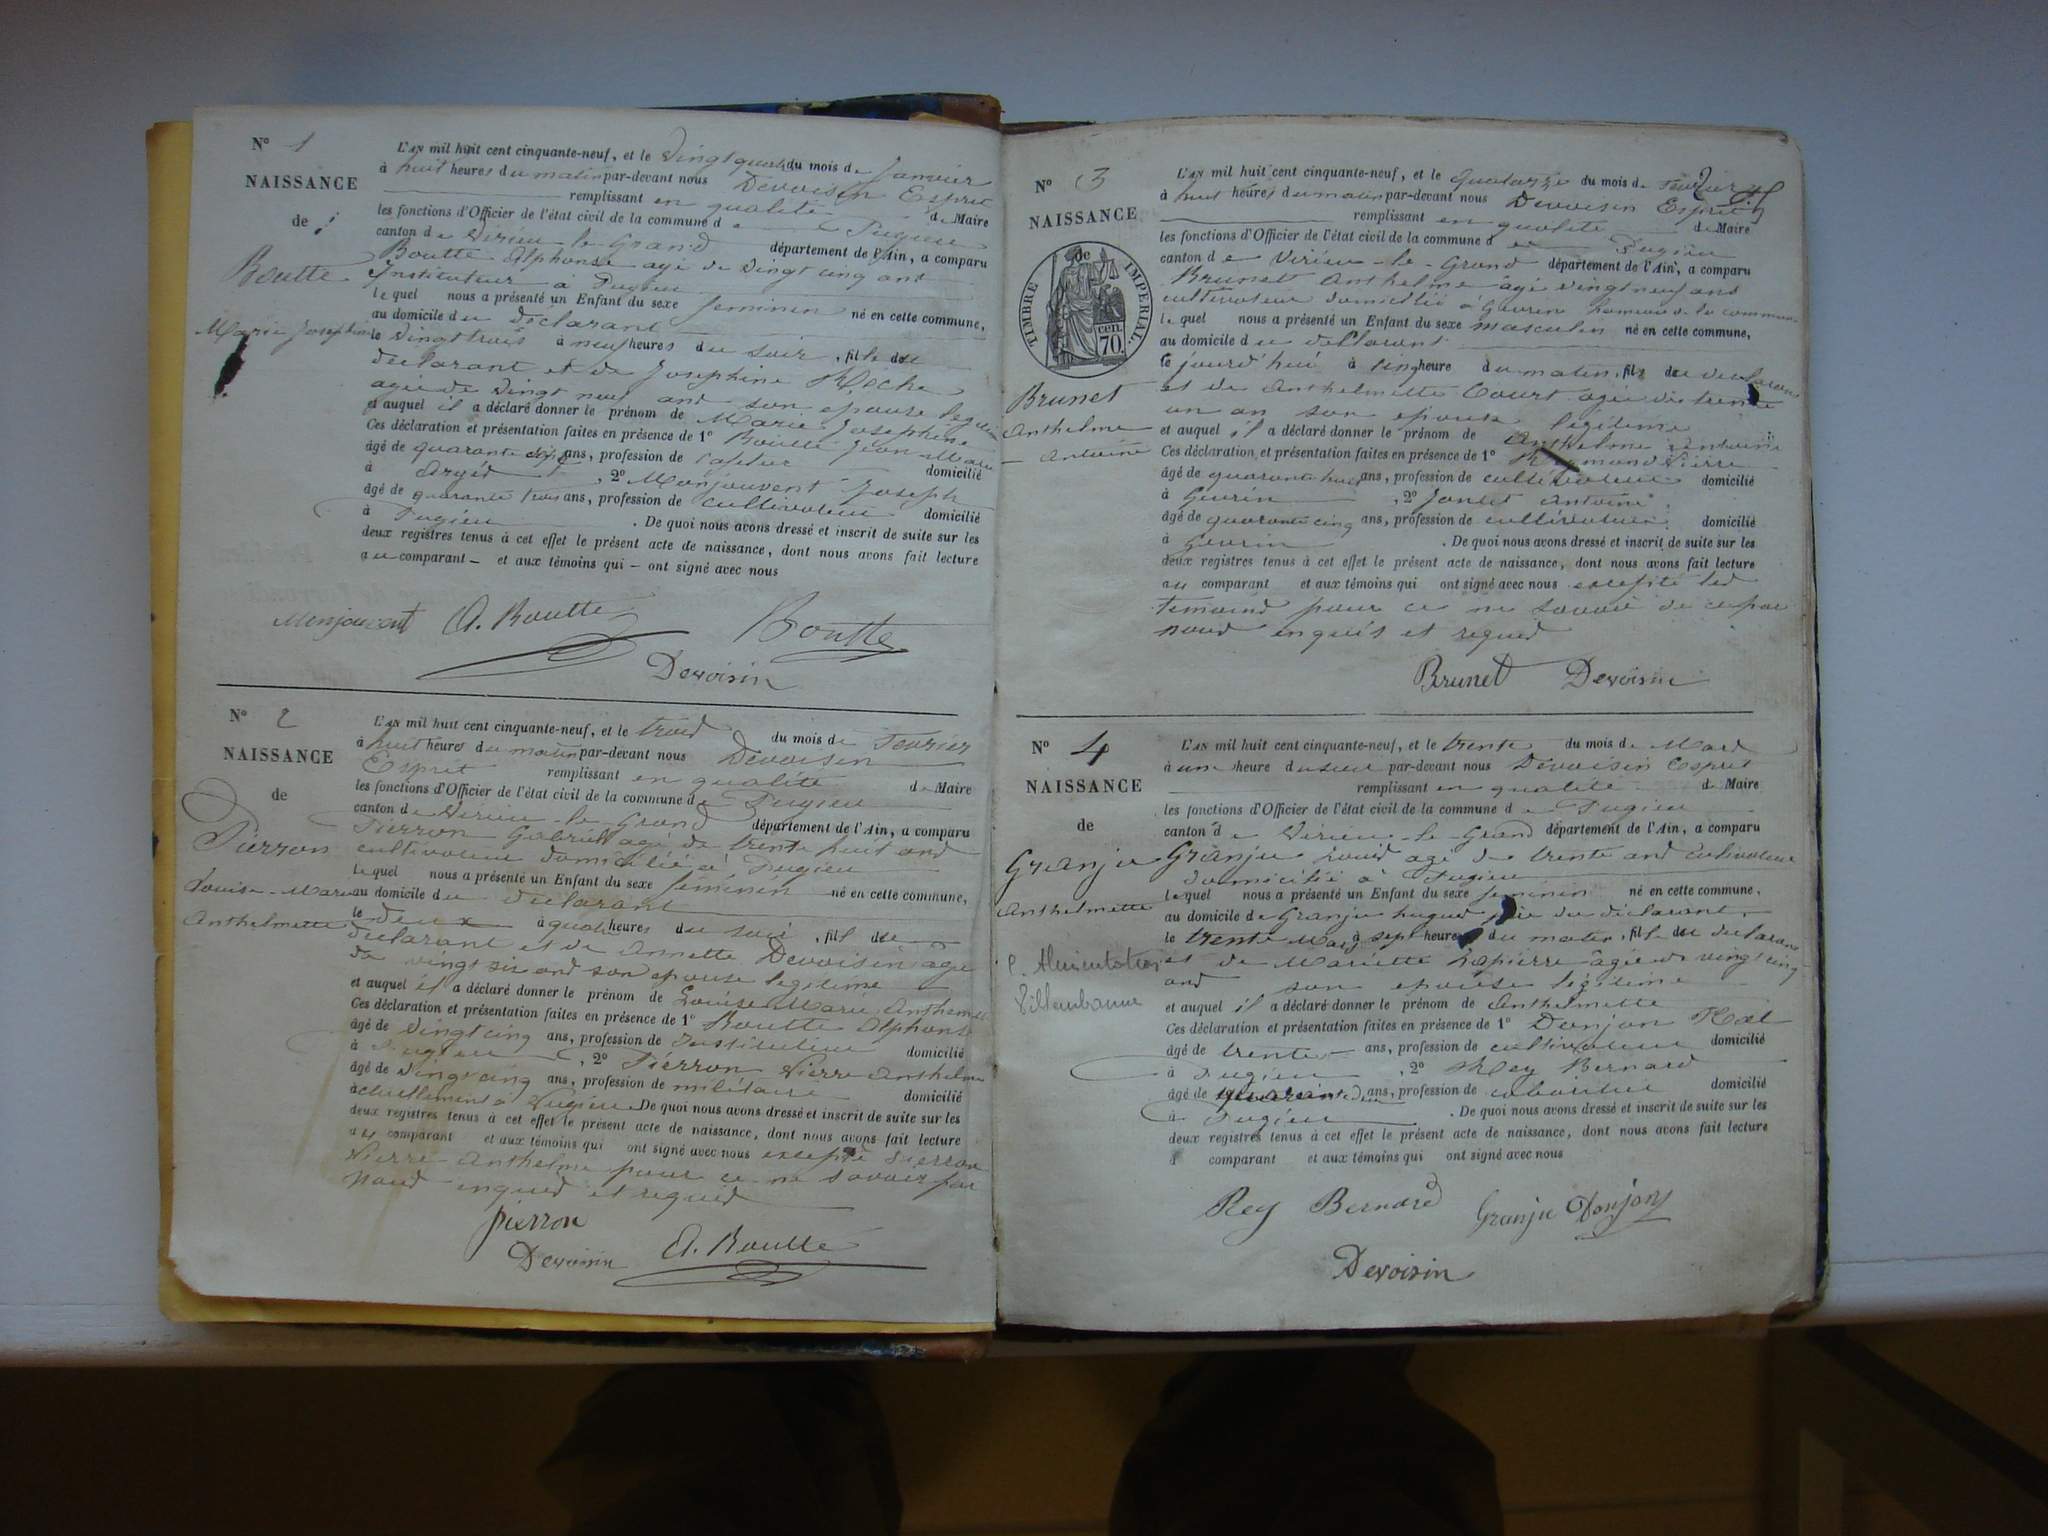 N° 1
NAISSANCE
de
Boutte
Marie Josephine
L'AN mil huit cent cinquante-neuf, et le vingt quatre du mois de Janvier
à huit heures du matin par-devant nous Devoisin Esprit
remplissant en qualité de Maire
les fonctions d'Officier de l'état civil de la commune de Pugieu
canton de Virieu-le-Grand département de l'Ain, a comparu
Boutte Alphonse agé de vingt cinq ans
Instituteur à Pugieu
lequel nous a présenté un Enfant du sexe feminin né en cette commune,
au domicile du déclarant
le vingt trois à neuf heures du soir, fille du
déclarant et de Josephine Roche
agée de vingt neuf ans son épouse légitime
et auquel il a déclaré donner le prénom de Marie Josephine
Ces déclaration et présentation faites en présence de 1° Boutte Jean-Marie
âgé de quarante ans, profession de domicilié
à , 2° Monjouvent Joseph
âgé de quarante trois ans, profession de cultivateur domicilié
à Pugieu . De quoi nous avons dressé et inscrit de suite sur les
deux registres tenus à cet effet le présent acte de naissance, dont nous avons fait lecture
au comparant – et aux témoins qui – ont signé avec nous
Monjouvent A. Boutte Boutte
Devoisin
N° 2
NAISSANCE
de
Pierron
Louise-Marie
Anthelmette
L'AN mil huit cent cinquante-neuf, et le trois du mois de Fevrier
à huit heures du matin par-devant nous Devoisin
Esprit remplissant en qualité de Maire
les fonctions d'Officier de l'état civil de la commune de Pugieu
canton de Virieu-le-Grand département de l'Ain, a comparu
Pierron Gabriel agé de trente huit ans
cultivateur domicilié à Pugieu
lequel nous a présenté un Enfant du sexe féminin né en cette commune,
au domicile du déclarant
le deux à quatre heures du soir, fille du
déclarant et de Annette Devoisin agée
de vingt six ans son epouse legitime
et auquel il a déclaré donner le prénom de Louise Marie Anthelmette
Ces déclaration et présentation faites en présence de 1° Boutte Alphonse
âgé de vingt cinq ans, profession de Instituteur domicilié
à Pugieu , 2° Pierron Pierre Anthelme
âgé de vingt cinq ans, profession de militaire domicilié
actuellement à Pugieu De quoi nous avons dressé et inscrit de suite sur les
deux registres tenus à cet effet le présent acte de naissance, dont nous avons fait lecture
au comparant et aux témoins qui ont signé avec nous excepté Pierron
Pierre Anthelme pour ce ne savoir par
nous enquis et requis
pierron
Devoisin A. Boutte
N° 3
NAISSANCE
de
TIMBRE IMPERIAL.
70 cen.
Brunet
Anthelme
Antoine
L'AN mil huit cent cinquante-neuf, et le quatorze du mois de Fevrier
à huit heures du matin par-devant nous Devoisin Esprit
remplissant en qualité de Maire
les fonctions d'Officier de l'état civil de la commune de Pugieu
canton de Virieu-le-Grand département de l'Ain, a comparu
Brunet Anthelme âgé vingt neuf ans
cultivateur domicilié à hameau de la commune
lequel nous a présenté un Enfant du sexe masculin né en cette commune,
au domicile du déclarant
le jourd'hui à cinq heure du matin, fils du déclarant
et de Anthelmette Court agée de trente
un an son epouse légitime
et auquel il a déclaré donner le prénom de Anthelme Antoine
Ces déclaration et présentation faites en présence de 1° Reymond Pierre
âgé de quarante huit ans, profession de cultivateur domicilié
à , 2° Antoine
âgé de quarante cinq ans, profession de cultivateur domicilié
à . De quoi nous avons dressé et inscrit de suite sur les
deux registres tenus à cet effet le présent acte de naissance, dont nous avons fait lecture
au comparant et aux témoins qui ont signé avec nous excepté les
temoins pour ce ne savoir de ce par
nous enquis et requis
Brunet Devoisin
N° 4
NAISSANCE
de
Granju
Anthelmette
Villeurbanne
L'AN mil huit cent cinquante-neuf, et le trente du mois de Mars
à une heure du soir par-devant nous Devoisin Esprit
remplissant en qualité de Maire
les fonctions d'Officier de l'état civil de la commune de Pugieu
canton de Virieu-le-Grand département de l'Ain, a comparu
Granju Louis agé de trente ans Cultivateur
domicilié à Pugieu
lequel nous a présenté un Enfant du sexe feminin né en cette commune,
au domicile de Granju hugues père du déclarant
le trente Mars à sept heures du matin, fille du déclarant
et de Mariette Lapierre âgée de vingt cinq
ans son epouse légitime
et auquel il a déclaré donner le prénom de Anthelmette
Ces déclaration et présentation faites en présence de 1° Donjon
âgé de trente ans, profession de cultivateur domicilié
à Pugieu , 2° Rey Bernard
âgé de ans, profession de domicilié
à Pugieu . De quoi nous avons dressé et inscrit de suite sur les
deux registres tenus à cet effet le présent acte de naissance, dont nous avons fait lecture
a comparant et aux témoins qui ont signé avec nous
Rey Bernard Granju Donjon
Devoisin